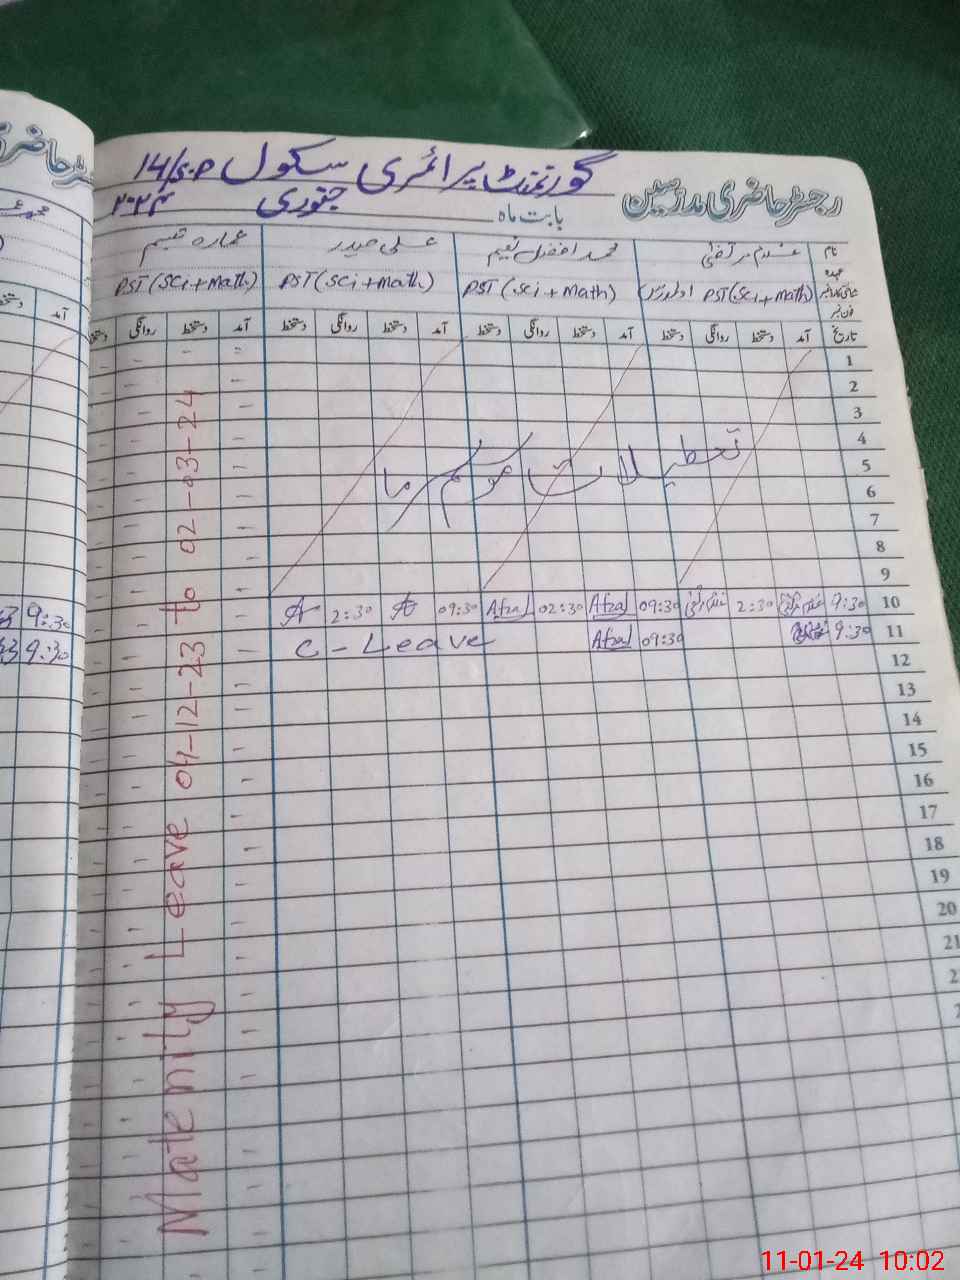 رجسٹر حاضری مدرسین
گورنمنٹ پرائمری سکول 14/S.P
بابت ماہ جنوری ۲۰۲۴
نام غلام مرتضیٰ محمد افضل نعیم علی حیدر عمارہ
عہدہ PST (Sci + Math) PST (Sci + Math) PST (Sci + Math) PST (Sci + Math)
فون نمبر
تاریخ آمد دستخط روانگی دستخط آمد دستخط روانگی دستخط آمد دستخط روانگی دستخط آمد دستخط روانگی دستخط
آمد
1
2
3
4
تعطیلات موسم سرما
5
6
7
8
9
10 9:30 2:30 09:30 Afzal 02:30 Afzal 09:30 2:30
9:30
11 9:30 09:30 Afzal C - Leave
9:30
12
13
14
15
16
17
18
19
20
21
2
2
Maternity Leave 04-12-23 to 02-03-24
11-01-24 10:02